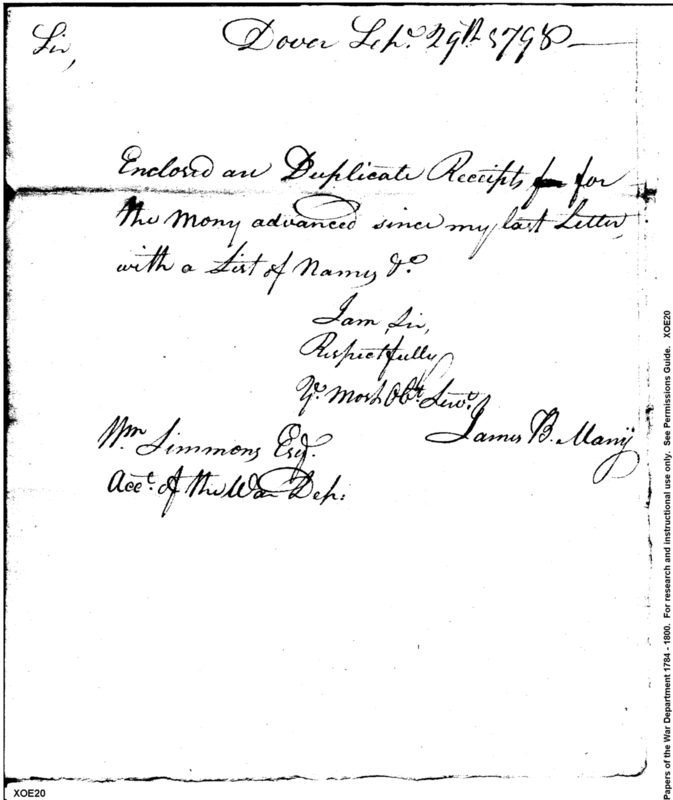 Sir, Dover Sepr. 29th 1798
Enclosed are Duplicate Receipts for for
the Mony advanced since my last Letter,
with a List of Names &c
I am, Sir,
Respectfully
Yr. most Obt. Servt.
James B. Many
Wm. Simmons Esqr.
Acct. of the War Dep:
Papers of the War Department 1784 - 1800. For research and instructional use only. See Permissions Guide. XOE20
XOE20